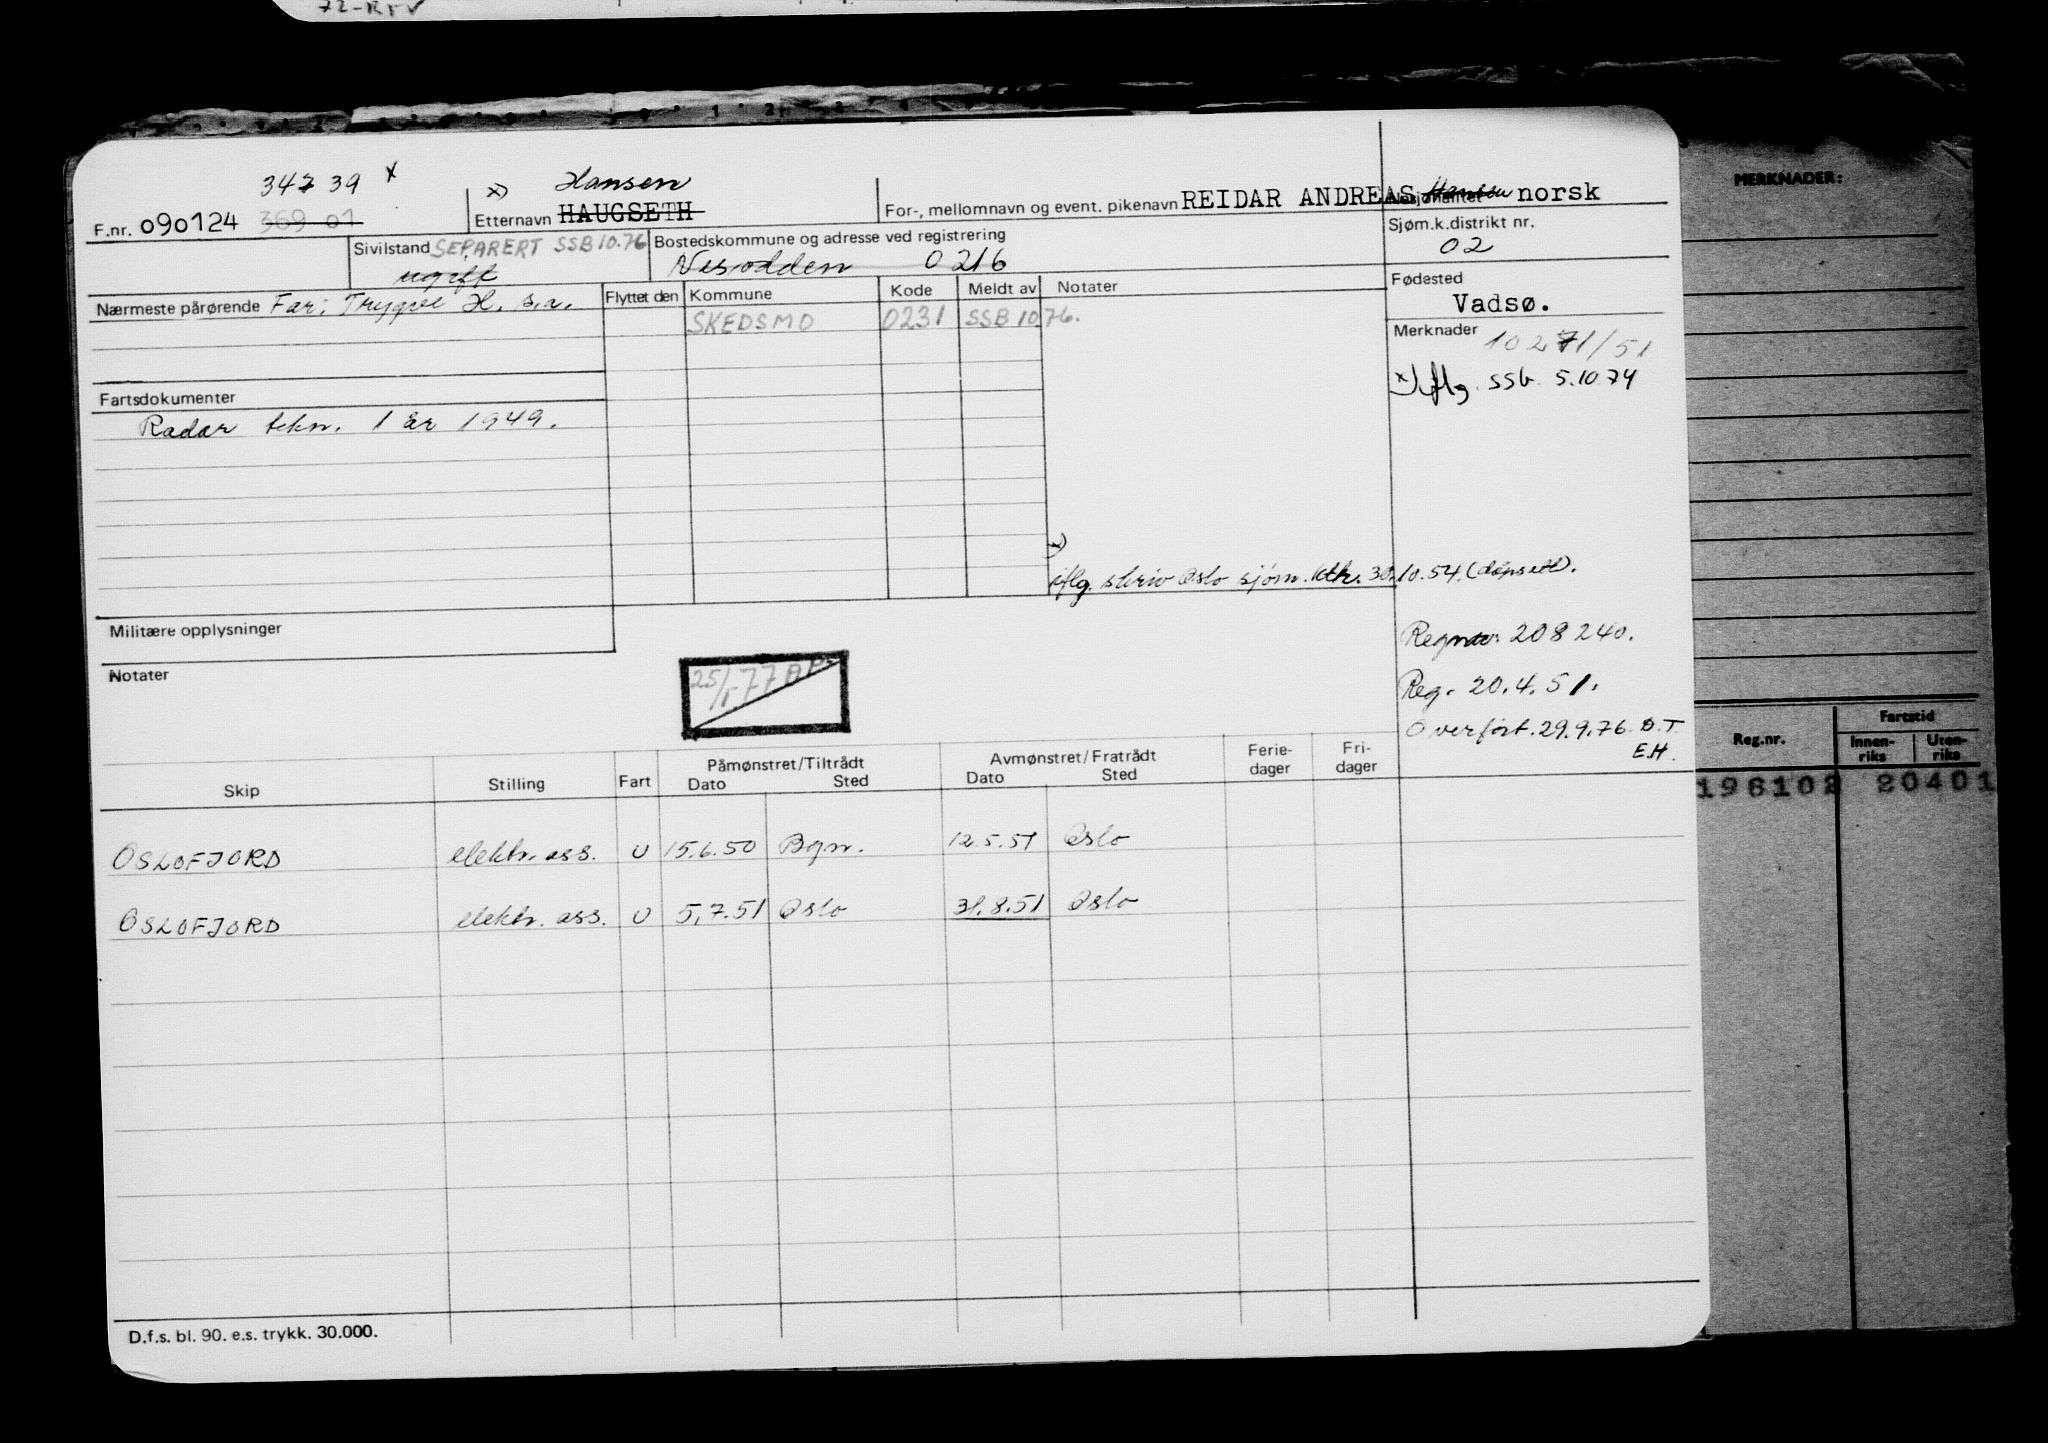 72-RTV
MERKNADER:
34739 x
x) Hansen
F.nr. 090124 369 01
Etternavn HAUGSETH
For-, mellomnavn og event. pikenavn REIDAR ANDREAS Hansen
Nasjonalitet norsk
Sjøm.k.distrikt nr.
02
Sivilstand SEPARERT SSB 10.76
ugift
Bostedskommune og adresse ved registrering
Nesodden 0216
Fødested
Vadsø.
Nærmeste pårørende Far: Trygve H. s.a.
Flyttet den Kommune Kode Meldt av Notater
SKEDSMO 0231 SSB 10.76.
Merknader 10271/51
x) iflg. ssb. 5.10.74
Fartsdokumenter
Radar tekn. 1 år 1949.
x)
iflg. skriv Oslo sjøm.ktr. 30.10.54. (dåpsatt).
Militære opplysninger
Regnr. 208240.
Notater
25/1-77
Reg. 20.4.51.
Overført. 29.9.76. D.T.
E.H.
Reg.nr. Fartstid
Innen-riks Uten-riks
196102 20401
Skip Stilling Fart Påmønstret/Tiltrådt Dato Sted Avmønstret/Fratrådt Dato Sted Ferie-dager Fri-dager
OSLOFJORD elektr. ass. U 15.6.50 Bgn. 12.5.51 Oslo
OSLOFJORD elektr. ass. U 5.7.51 Oslo 31.8.51 Oslo
D.f.s. bl. 90. e.s. trykk. 30.000.